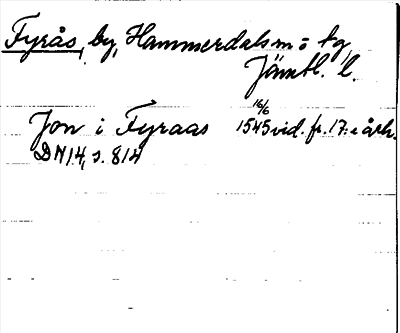 Fyrås, by, Hammerdals sn o tg
Jämtl. l.
Jon i Fyraas 16/6 1545 vid. fr. 17:e årh.
DN 14, s. 814